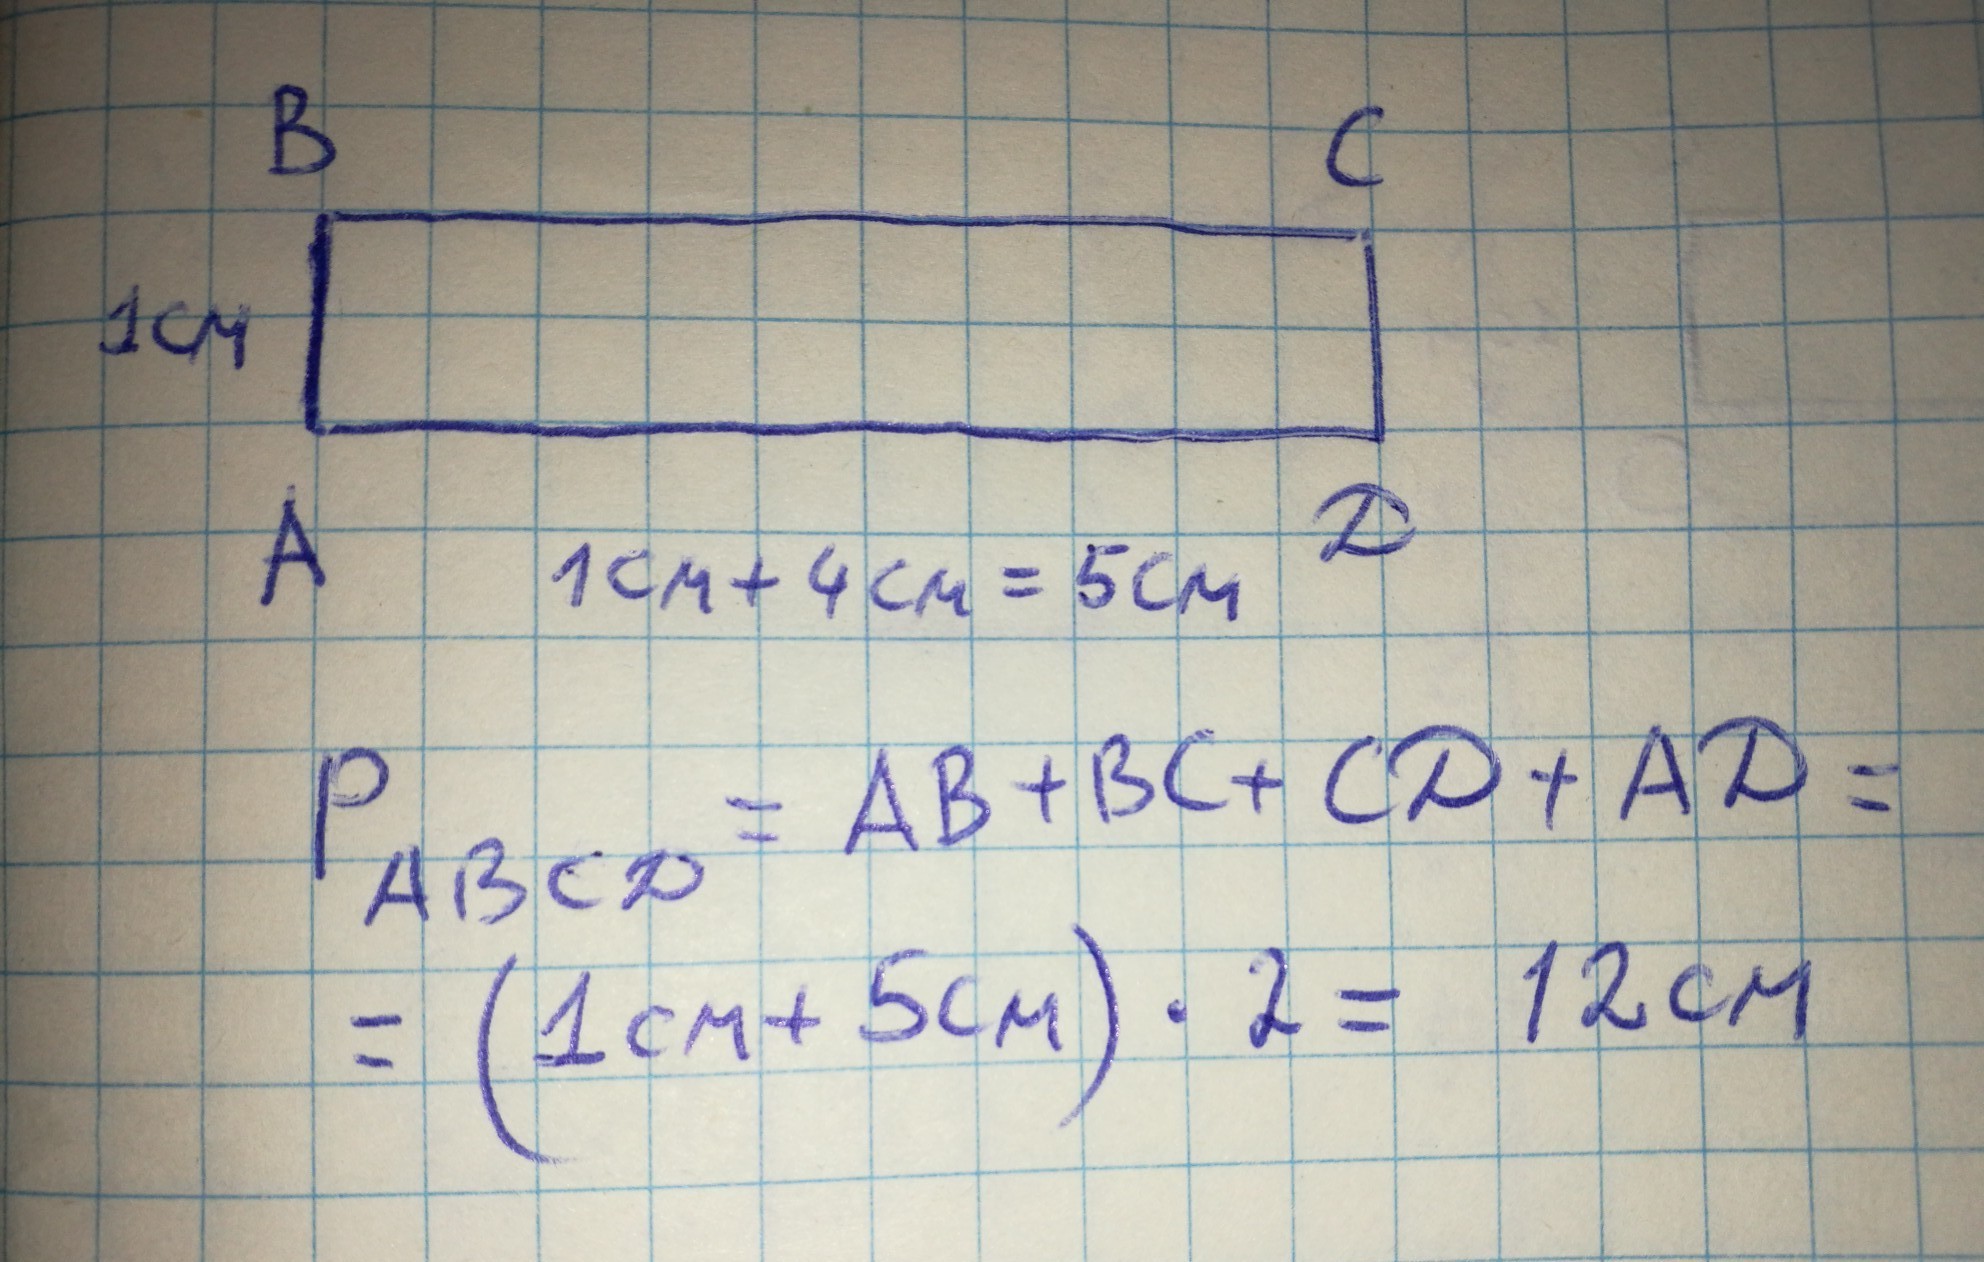 B C
1см
A D
1см + 4см = 5см
P ABCD = AB + BC + CD + AD =
= (1см + 5см) · 2 = 12см